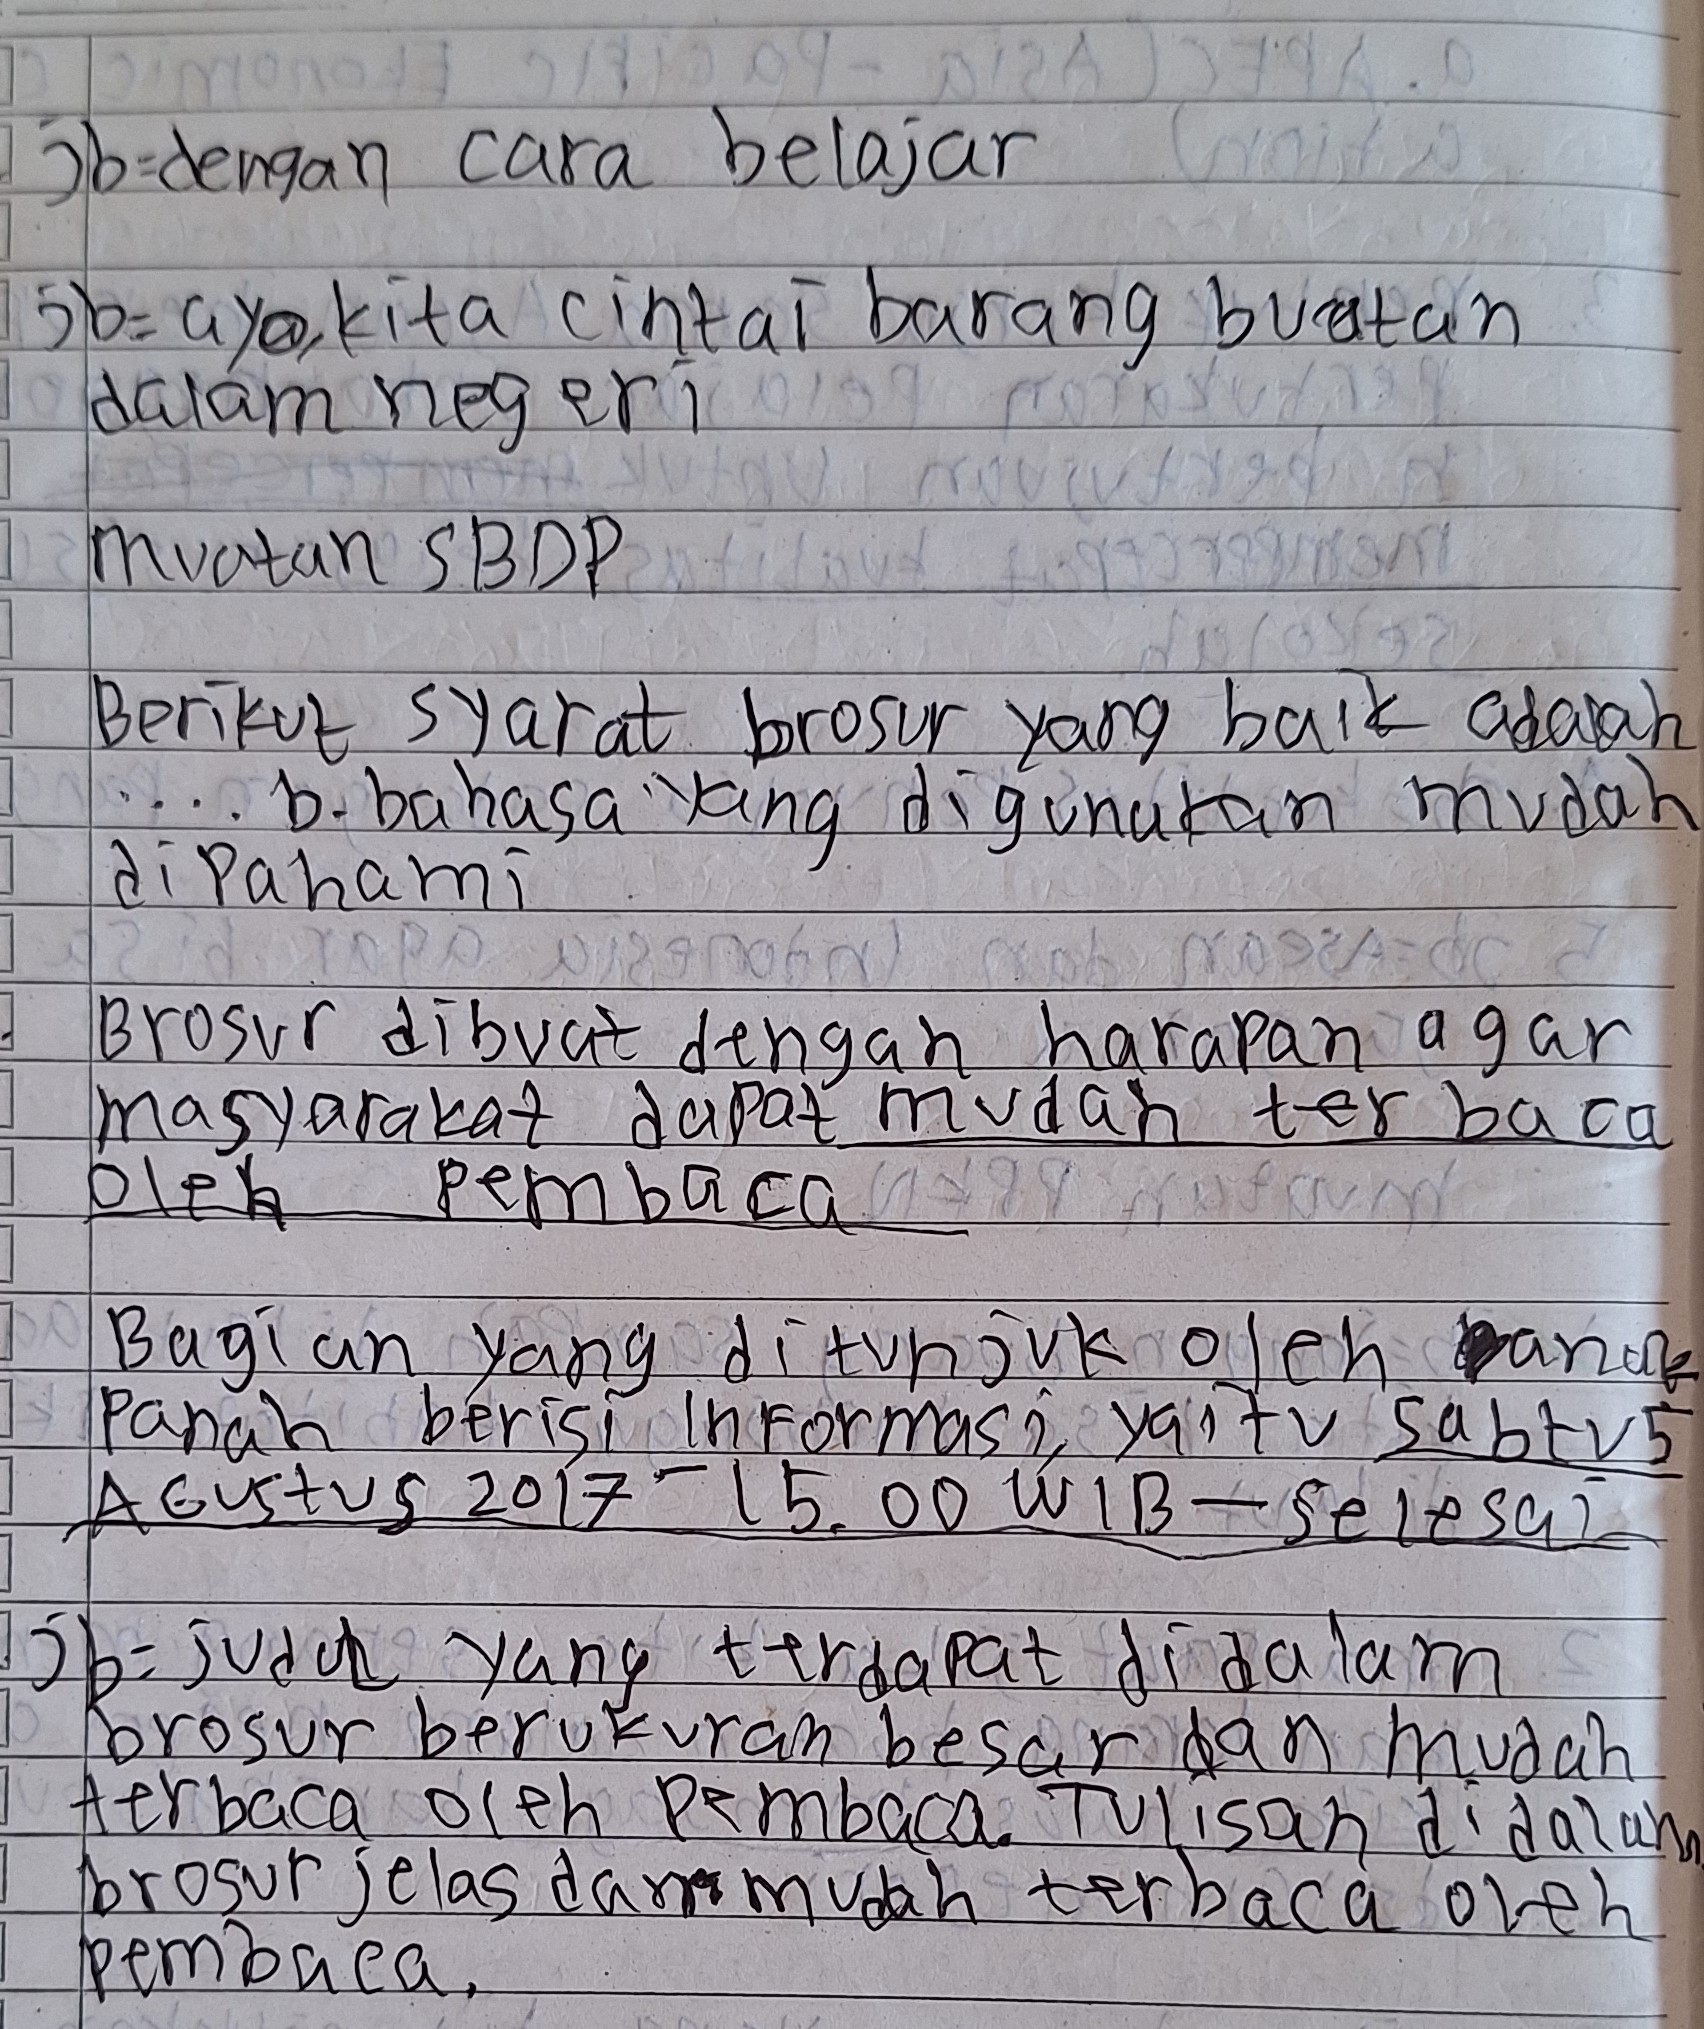 jb=dengan cara belajar
jb= ayo, kita cintai barang buatan
dalam negeri
muatan SBDP
Berikut syarat brosur yang baik adalah
.... b. bahasa yang digunakan mudah
dipahami
Brosur dibuat dengan harapan agar
masyarakat dapat mudah ter baca
oleh pembaca
Bagian yang ditunjuk oleh
Panah berisi informasi, yaitu sabtu 5
AGustus 2017 - 15.00 WIB - selesai
jb= judul yang terdapat didalam
brosur berukuran besar dan mudah
terbaca oleh pembaca. Tulisan didalam
brosur jelas dan mudah terbaca oleh
pembaca.